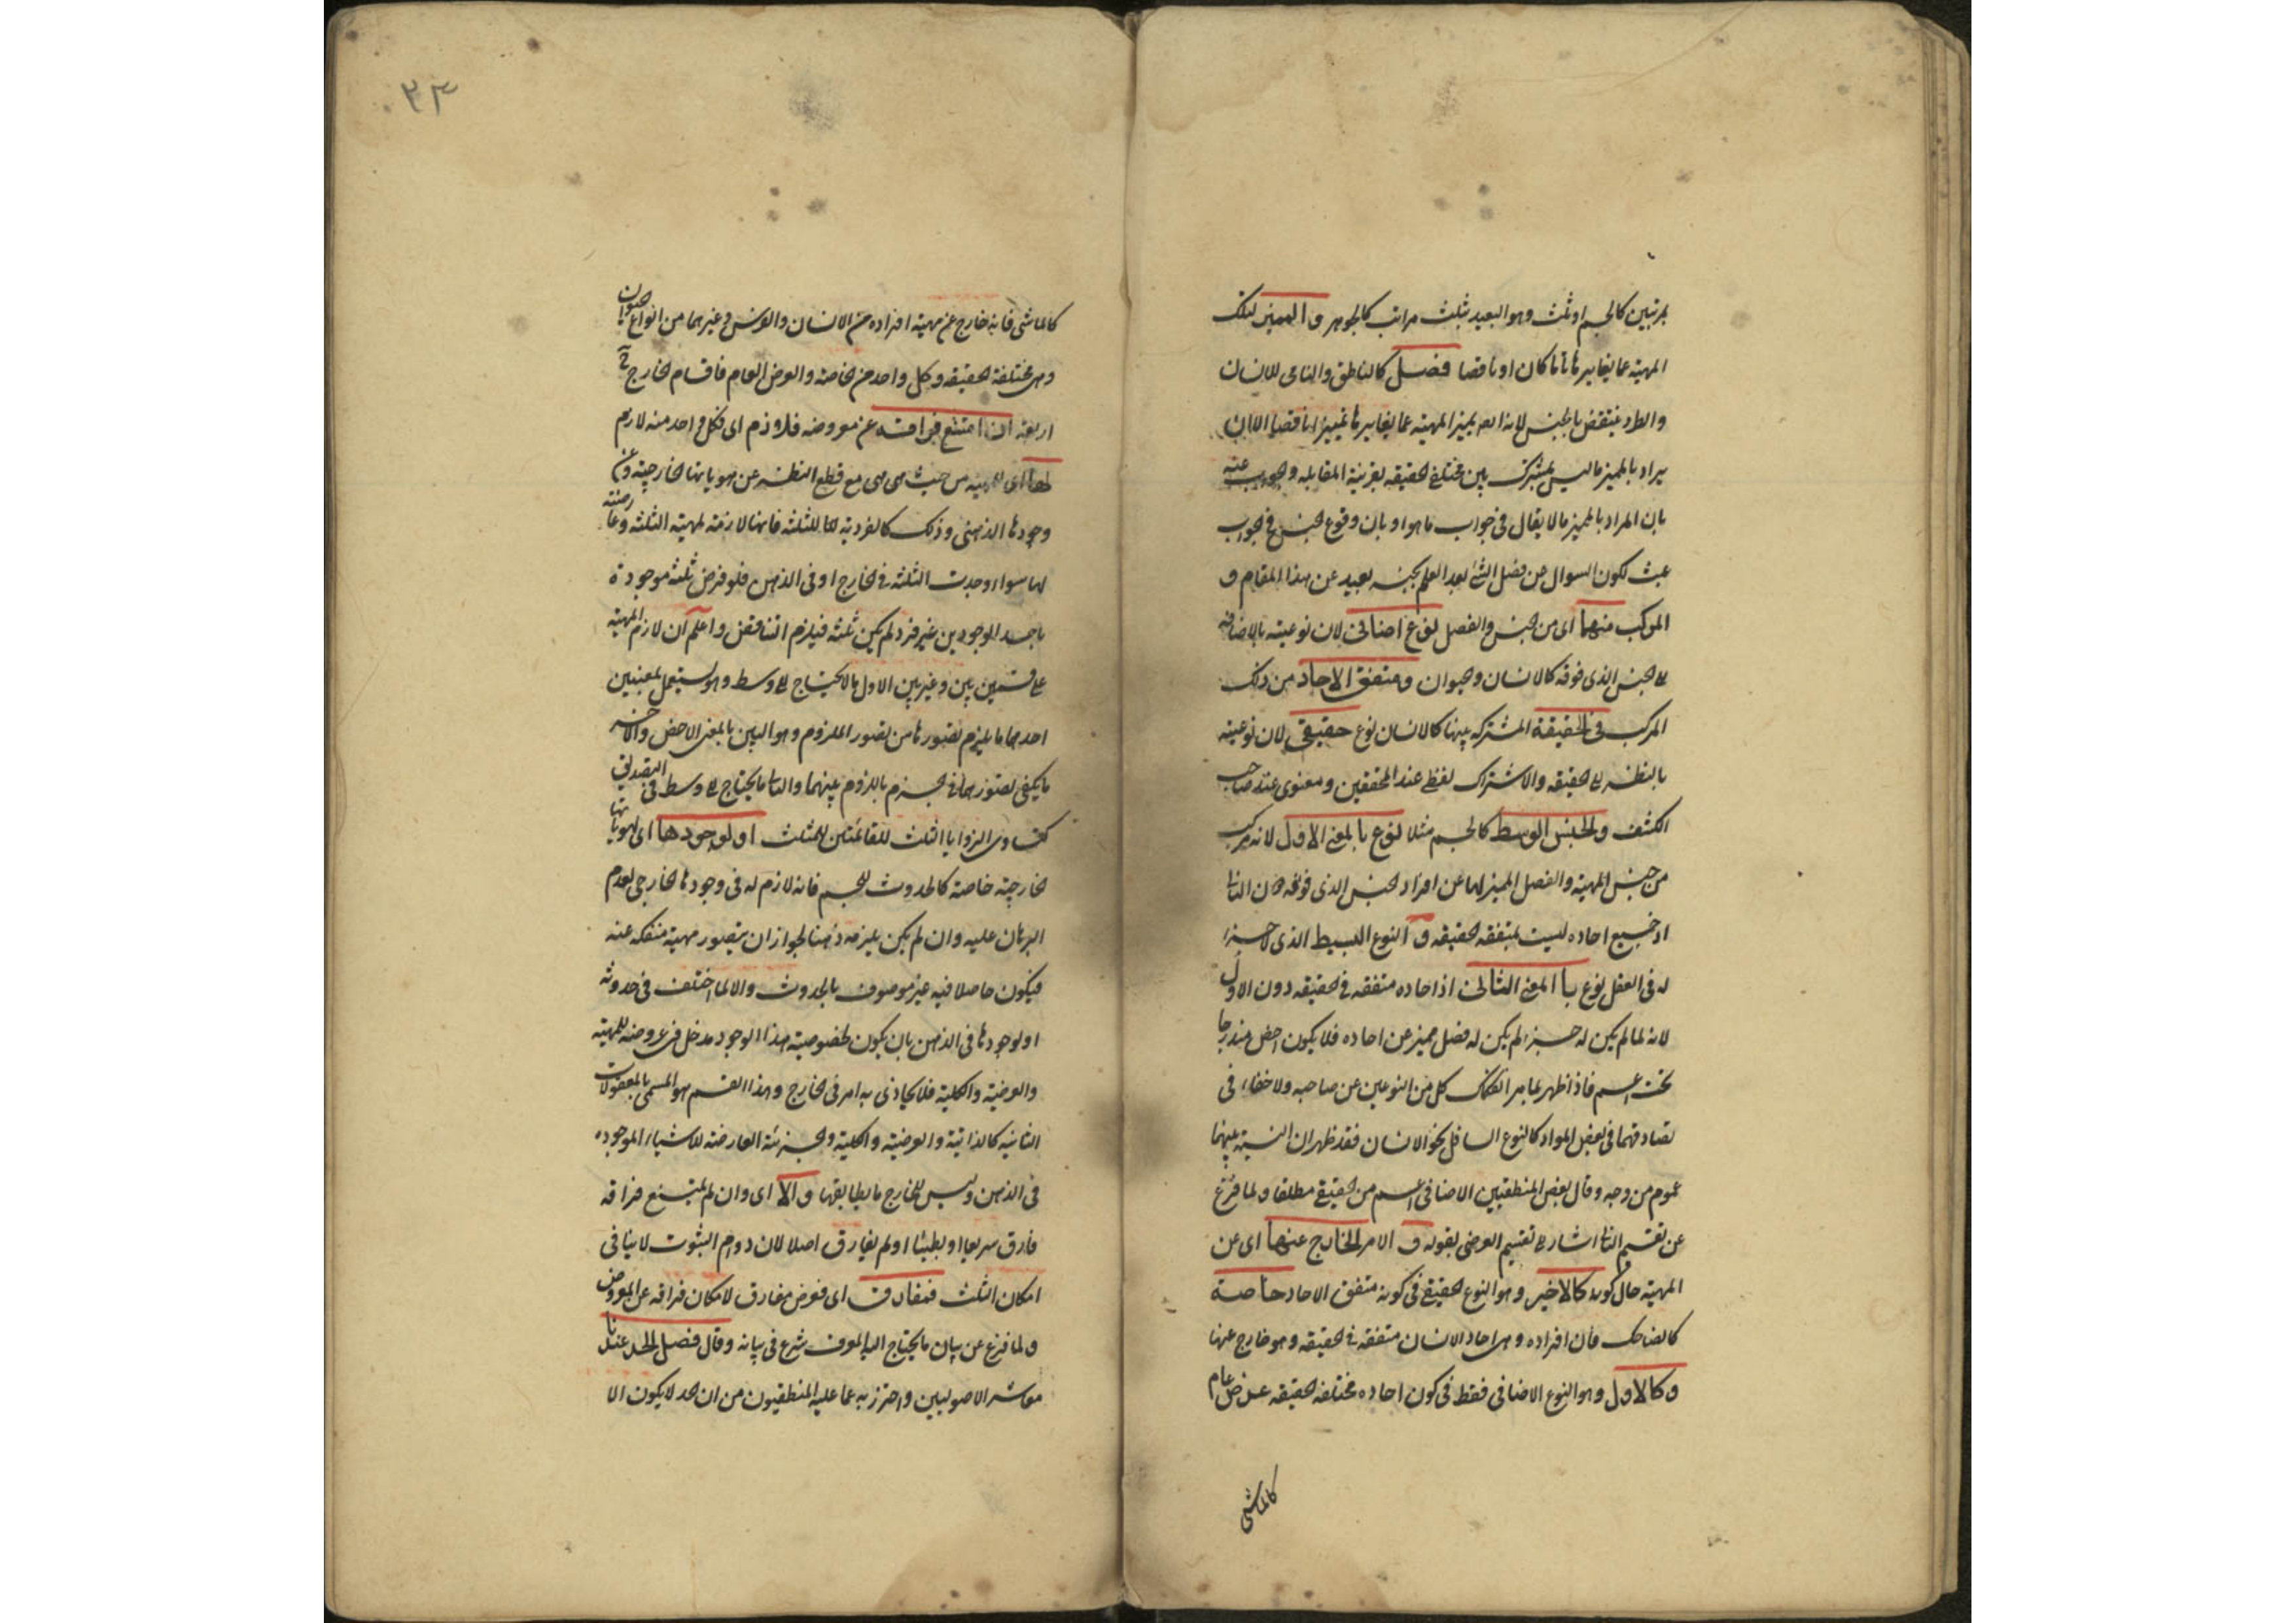 بمرتبتين كالجسم او ثلث وهو البعيد بثلث مراتب كالجوهر و المميز لتلك
المهية عما يغايرها تاما كان او ناقصا فصل كالناطق والنامى للانسان
والطرد ينتقض بالجنس لانه ايضا يميز المهية عما يغايرها تمييزا ناقصا الا ان
يراد بالمميز ما ليس بمشترك بين مختلفى الحقيقه بقرينة المقابله والجواب عنه
بان المراد بالمميز ما لا يقال فى جواب ما هو او بان وقوع الجنس فى الجواب
عبث لكون السوال عن فصل الشئ بعد العلم بجنسه بعيد عن هذا المقام و
المركب منهما اى من الجنس والفصل نوع اضافى لان نوعيته بالاضافه
الى الجنس الذى فوقه كالانسان والحيوان و متفق الاحاد من ذلك
المركب فى الحقيقة المشتركه بينها كالانسان نوع حقيقى لان نوعيته
بالنظر الى الحقيقه والاشتراك لفظى عند المحققين ومعنوى عند صاحب
الكشف والجنس الوسط كالجسم مثلا نوع بالمعنى الاول لانه مركب
من جنس المهية والفصل المميز لها عن افراد الجنس الذى فوقه دون الثانى
اذ جميع احاده ليست بمتفقه الحقيقه و النوع البسيط الذى لا جزء
له فى العقل نوع با المعنى الثانى اذ احاده متفقه فى الحقيقه دون الاول
لانه لما لم يكن له جزء لم يكن له فصل مميز عن احاده فلا يكون اخص مندرجا
تحت اعم فاذا ظهر بما مر انفكاك كل من النوعين عن صاحبه ولا خفاء فى
تصادقهما فى بعض المواد كالنوع السافل نحو الانسان فقد ظهر ان النسبة بينهما
عموم من وجه وقال بعض المنطقيين الاضافى اعم من الحقيقى مطلقا ولما فرغ
عن تقسيم الذاتى اشار الى تقسيم العرضى بقوله و الامر الخارج عنها اى عن
المهية حال كونه كالاخير وهو النوع الحقيقى فى كونه متفق الاحاد خاصة
كالضاحك فان افراده وهى احاد الانسان متفقه فى الحقيقه وهو خارج عنها
و كالاول وهو النوع الاضافى فقط فى كون احاده مختلفه الحقيقه عرض عام
كالماشى
٢٣
كالماشى فانه خارج عن مهية افراده من الانسان والفرس وغيرهما من انواع الحيوان
وهى مختلفة الحقيقه وكل واحد من الخاصه والعرض العام فاقسام الخارج ح
اربعة ان امتنع فراقه عن معروضه فلازم اى فكل واحد منه لازم
لها اى للمهية من حيث هى هى مع قطع النظر عن هوياتها الخارجية وعن
وجودها الذهنى وذلك كالفردية للثلثه فانها لازمة لمهية الثلثه وعارضة
لها سواء وجدت الثلثه فى الخارج او فى الذهن فلو فرض ثلثة موجودة
باحد الوجودين غير فرد لم يكن ثلثه فيلزم التناقض واعلم ان لازم المهية
على قسمين بين وغير بين الاول ما لا يحتاج الى وسط وهو يستعمل بمعنيين
احدهما ما يلزم تصورها من تصور الملزوم وهو البين بالمعنى الاخص والاخر
ما يكفى تصورهما فى الجزم باللزوم بينهما والثانى ما يحتاج الى وسط فى التصديق
كتساوى الزوايا الثلث للقائمتين للمثلث او لوجودها اى لهوياتها
الخارجية خاصة كالحدوث للجسم فانه لازم له فى وجودها الخارجى لعدم
البرهان عليه وان لم يكن يلزمه ذهنا لجواز ان يتصور مهية منفكه عنه
فيكون حاصلا فيه غير موصوف بالحدوث والا لما اختلف فى حدوثه
او لوجودها فى الذهن بان يكون لخصوصية هذا الوجود مدخل فى عروضه للمهية
والعرضية والكلية فلا يحاذى به امر فى الخارج وهذا القسم هو المسمى بالمعقولات
الثانيه كالذاتية والعرضية والكلية والجزئية العارضة للاشياء الموجوده
فى الذهن وليس فى الخارج ما يطابقها و الا اى وان لم يمتنع فراقه
فارق سريعا او بطيئا او لم يفارق اصلا لان دوام الثبوت لا ينافى
امكان الثلث فمفارق اى فعرض مفارق لامكان فراقه عن المعروض
ولما فرغ عن بيان ما يحتاج اليه المعرف شرع فى بيانه وقال فصل الحد عندنا
معاشر الاصوليين واحترز به عما عليه المنطقيون من ان الحد لا يكون الا